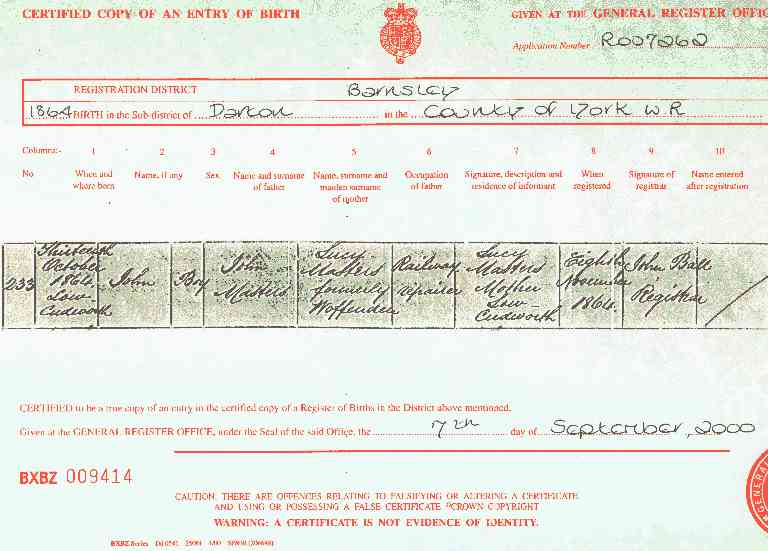 CERTIFIED COPY OF AN ENTRY OF BIRTH
GIVEN AT THE GENERAL REGISTER OFFIC
Application Number R007262
REGISTRATION DISTRICT Barnsley
1864 BIRTH in the Sub-district of Darton in the County of York W.R
Columns:- 1 2 3 4 5 6 7 8 9 10
No When and where born Name, if any Sex Name and surname of father Name, surname and maiden surname of mother Occupation of father Signature, description and residence of informant When registered Signature of registrar Name entered after registration
233 Thirteenth October 1864 Low Cudworth John Boy John Masters Lucy Masters formerly Woffenden Railway repairer Lucy Masters Mother Low Cudworth Eighth November 1864 John Ball Registrar
CERTIFIED to be a true copy of an entry in the certified copy of a Register of Births in the District above mentioned.
Given at the GENERAL REGISTER OFFICE, under the Seal of the said Office, the 7th day of September, 2000
BXBZ 009414
CAUTION: THERE ARE OFFENCES RELATING TO FALSIFYING OR ALTERING A CERTIFICATE
AND USING OR POSSESSING A FALSE CERTIFICATE ©CROWN COPYRIGHT
WARNING: A CERTIFICATE IS NOT EVIDENCE OF IDENTITY.
BXBZ Series
GENERAL